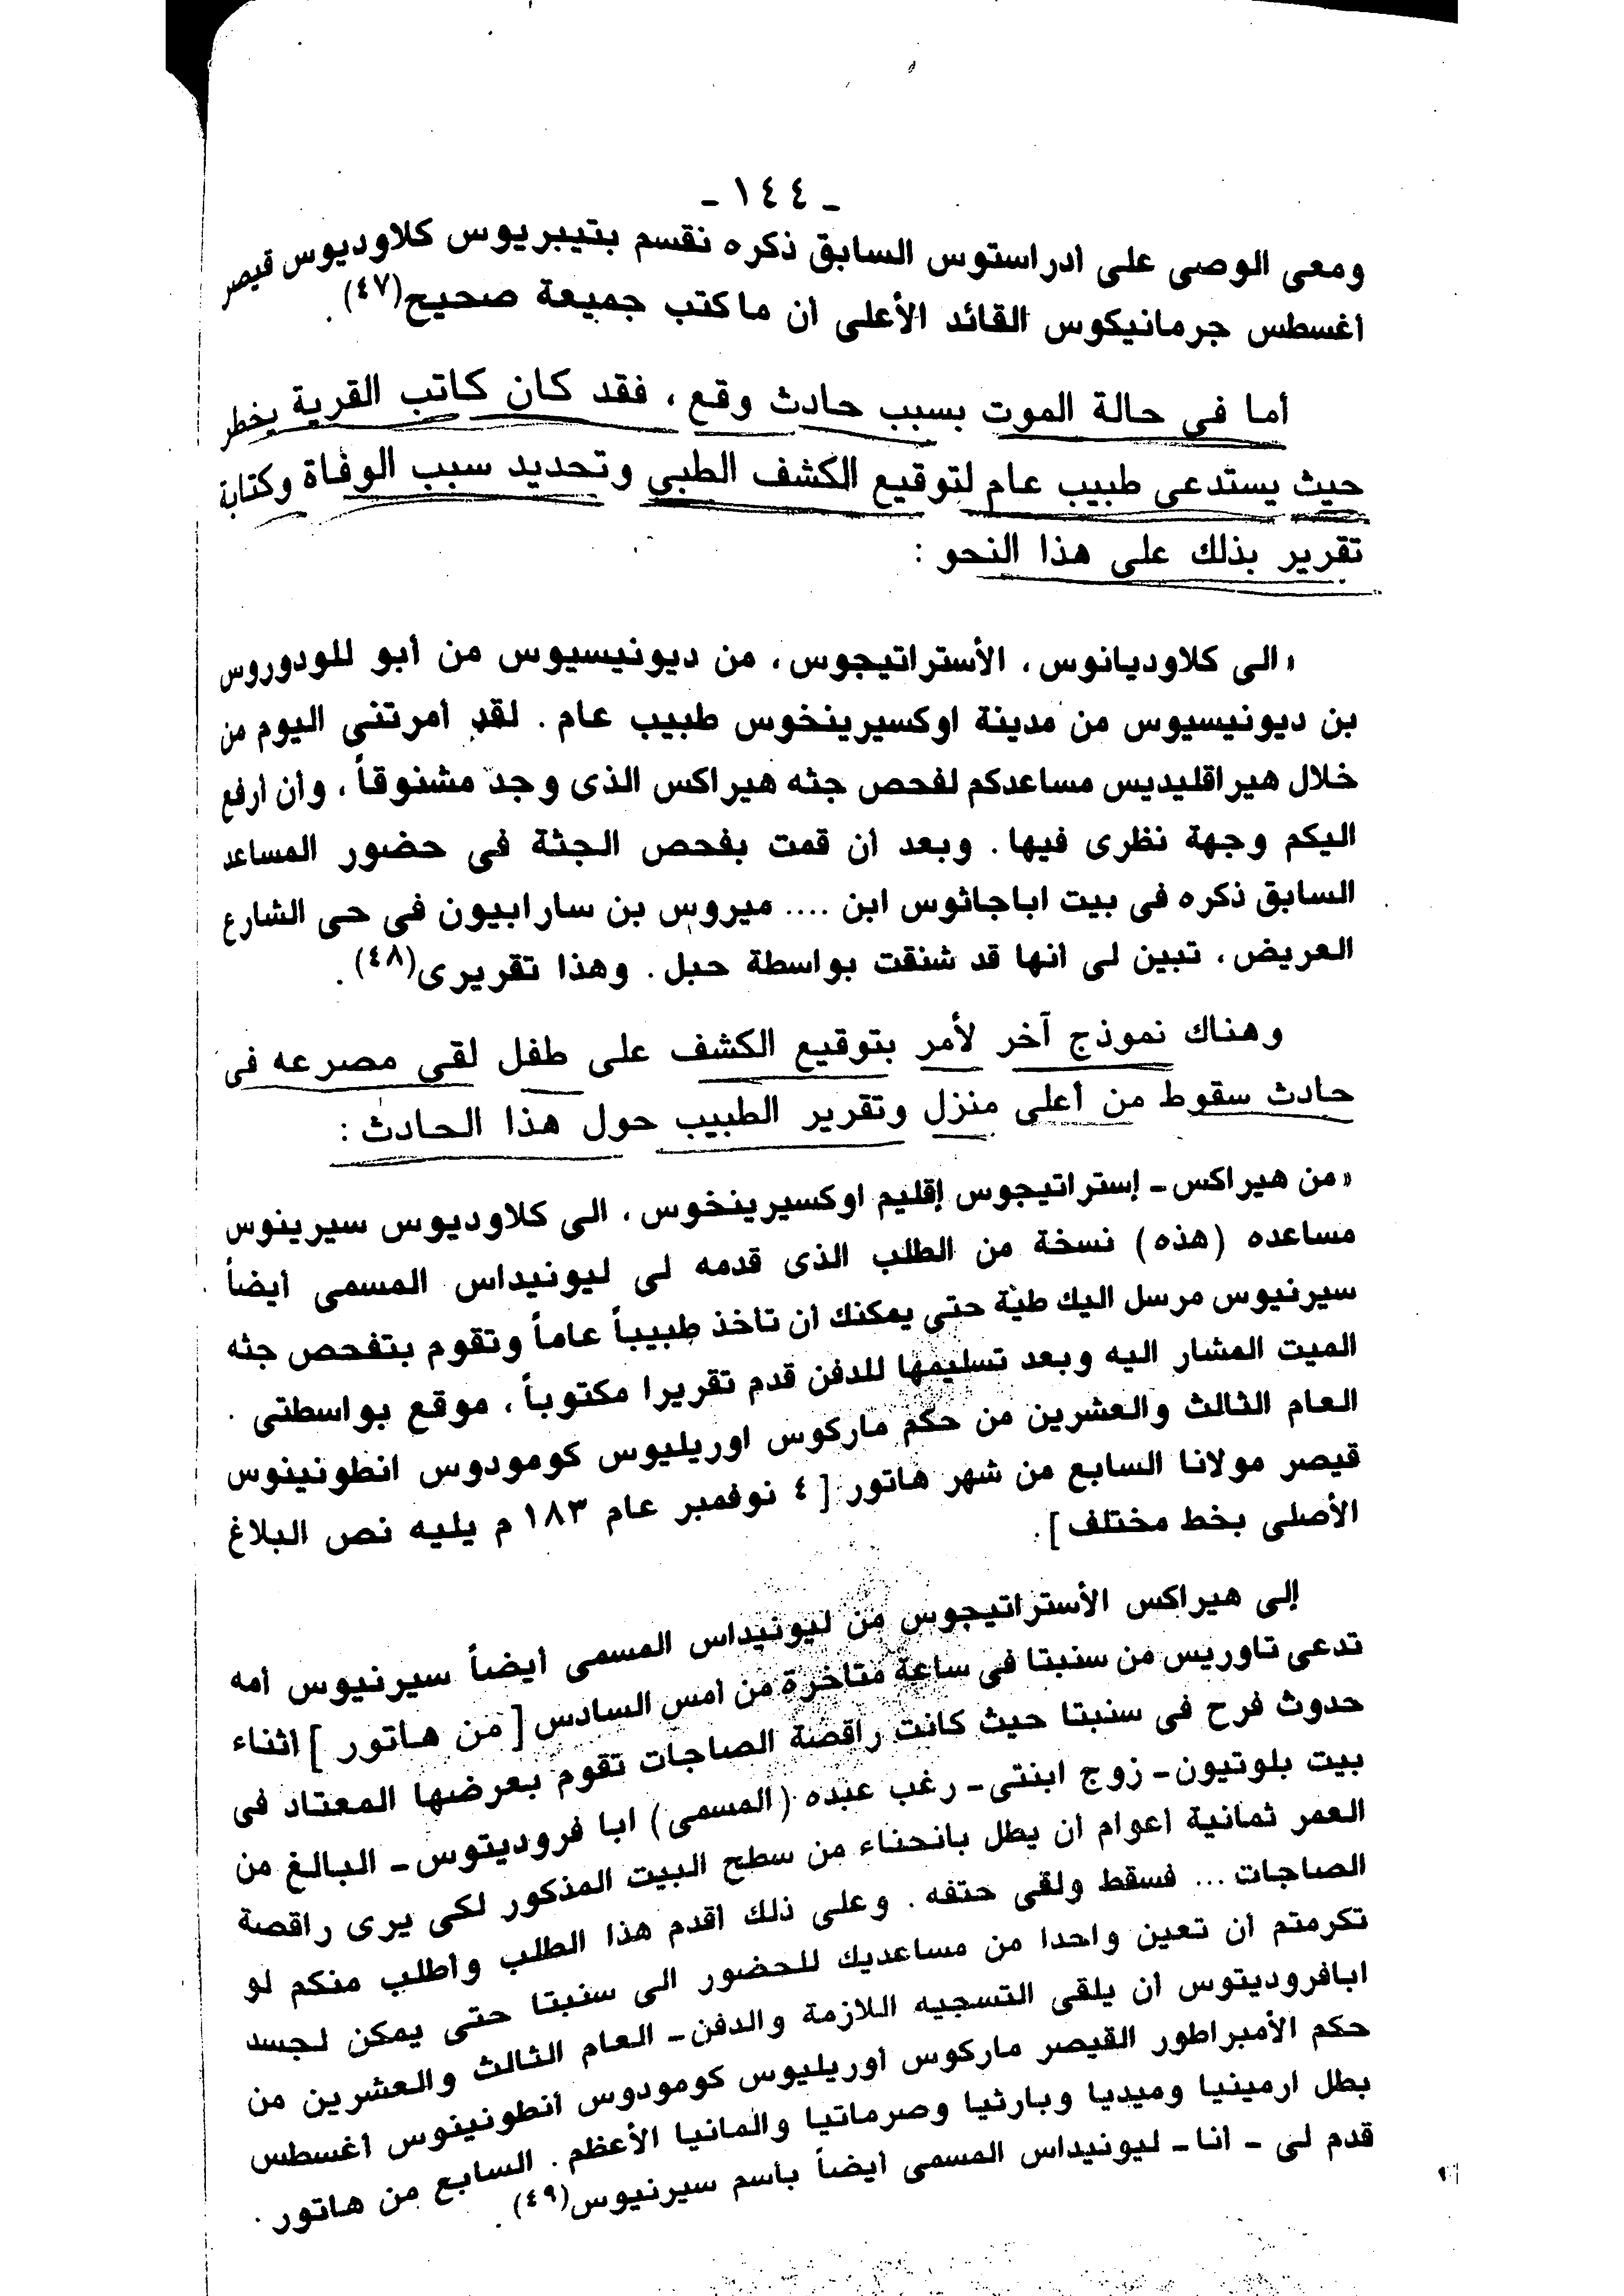 ـ ١٤٤ ـ
ومعى الوصى على ادراستوس السابق ذكره نقسم بتيبريوس كلاوديوس قيصر
أغسطس جرمانيكوس القائد الأعلى أن ماكتب جميعة صحيح(٤٧).
أما فى حالة الموت بسبب حادث وقع ، فقد كان كاتب القرية يخطر
حيث يستدعى طبيب عام لتوقيع الكشف الطبي وتحديد سبب الوفاة وكتابة
تقرير بذلك على هذا النحو :
« الى كلاوديانوس ، الأستراتيجوس ، من ديونيسيوس من أبو للودوروس
بن ديونيسيوس من مدينة اوكسيرينخوس طبيب عام . لقد أمرتنى اليوم من
خلال هيراقليديس مساعدكم لفحص جثه هيراكس الذى وجد مشنوقاً ، وأن أرفع
اليكم وجهة نظرى فيها . وبعد أن قمت بفحص الجثة فى حضور المساعد
السابق ذكره فى بيت اباجاثوس ابن .... ميروس بن سارابيون فى حى الشارع
العريض ، تبين لى أنها قد شنقت بواسطة حبل . وهذا تقريرى(٤٨) .
وهناك نموذج آخر لأمر بتوقيع الكشف على طفل لقى مصرعه فى
حادث سقوط من أعلى منزل وتقرير الطبيب حول هذا الحادث :
« من هيراكس ـ إستراتيجوس إقليم اوكسيرينخوس ، الى كلاوديوس سيرينوس
مساعده (هذه) نسخة من الطلب الذى قدمه لى ليونيداس المسمى أيضاً
سيرنيوس مرسل اليك طيّة حتى يمكنك أن تأخذ طبيباً عاماً وتقوم بتفحص جثه
الميت المشار اليه وبعد تسليمها للدفن قدم تقريرا مكتوباً ، موقع بواسطتى .
العام الثالث والعشرين من حكم ماركوس اوريليوس كومودوس انطونينوس
قيصر مولانا السابع من شهر هاتور [ ٤ نوفمبر عام ١٨٣ م يليه نص البلاغ
الأصلى بخط مختلف ] .
إلى هيراكس الأستراتيجوس من ليونيداس المسمى أيضاً سيرنيوس أمه
تدعى تاوريس من سنبتا فى ساعة متاخرة من أمس السادس [ من هاتور ] اثناء
حدوث فرح فى سنبتا حيث كانت راقصة الصاجات تقوم بعرضها المعتاد فى
بيت بلوتيون ـ زوج ابنتى ـ رغب عبده (المسمى) ابا فروديتوس ـ البالغ من
العمر ثمانية اعوام أن يطل بانحناء من سطح البيت المذكور لكى يرى راقصة
الصاجات ... فسقط ولقى حتفه . وعلى ذلك أقدم هذا الطلب وأطلب منكم لو
تكرمتم أن تعين واحدا من مساعديك للحضور الى سنبتا حتى يمكن لجسد
ابافروديتوس أن يلقى التسجيه اللازمة والدفن ـ العام الثالث والعشرين من
حكم الأمبراطور القيصر ماركوس أوريليوس كومودوس أنطونينوس أغسطس
بطل ارمينيا وميديا وبارثيا وصرماتيا والمانيا الأعظم . السابع من هاتور .
قدم لى ـ أنا ـ ليونيداس المسمى أيضاً بأسم سيرنيوس(٤٩) .